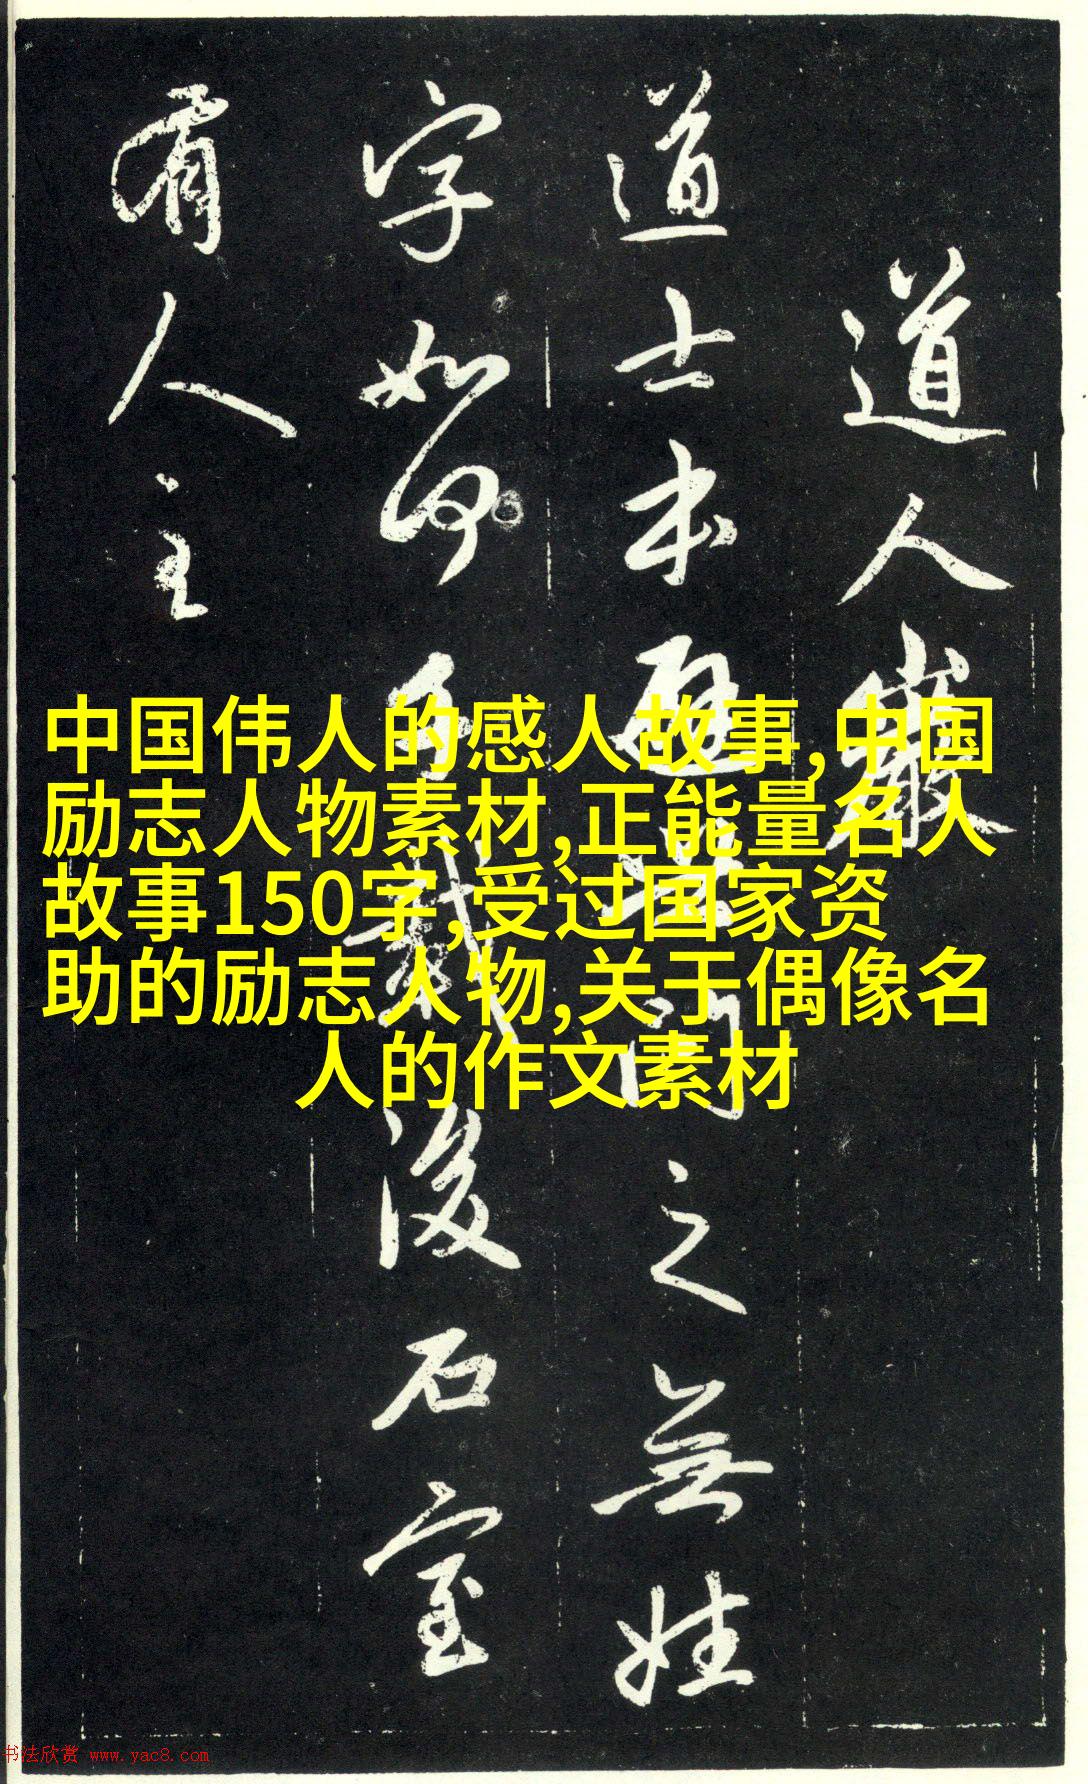 道人巖
道士本避之無姓
字如何後石室
有人主
中国伟人的感人故事,中国
励志人物素材,正能量名人
故事150字,受过国家资
助的励志人物,关于偶像名
人的作文素材
书法欣赏 www.yac8.com